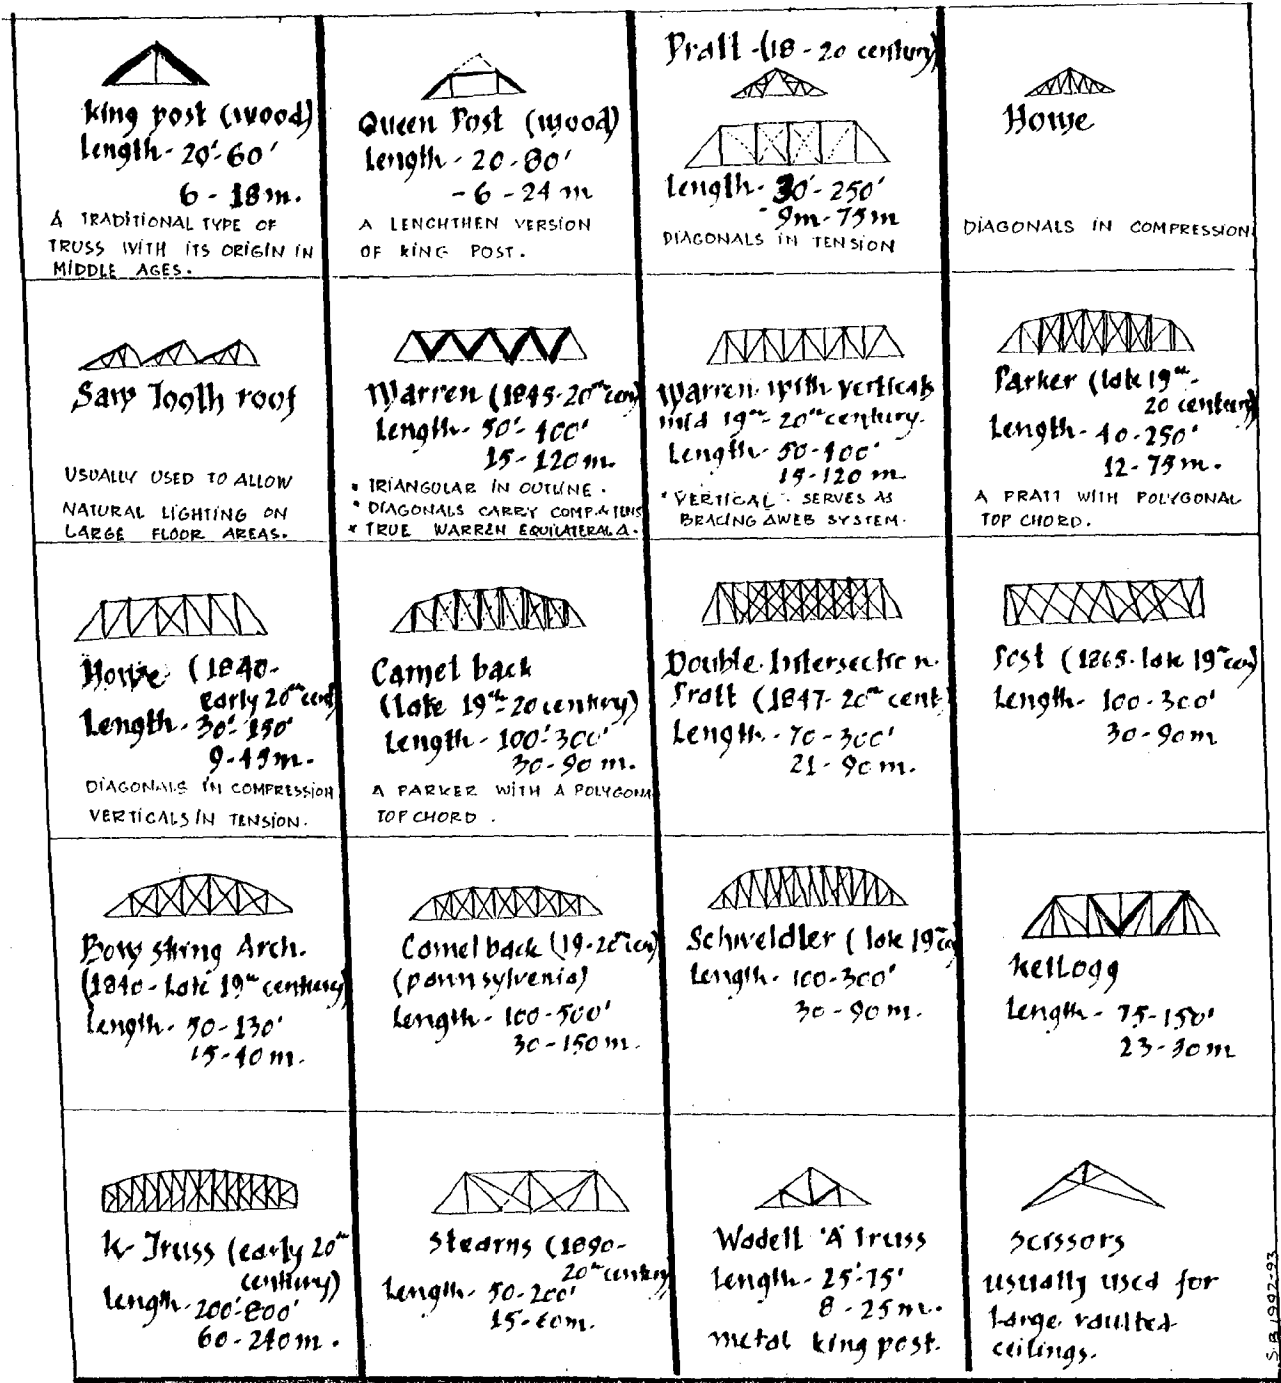 King post (wood)
Length - 20'-60'
6 - 18 m.
A TRADITIONAL TYPE OF
TRUSS WITH ITS ORIGIN IN
MIDDLE AGES.
Queen Post (wood)
Length - 20-80'
- 6 - 24 m
A LENGHTHEN VERSION
OF KING POST.
Pratt - (18 - 20 century)
Length - 30'- 250'
9m - 75m
DIAGONALS IN TENSION
Howe
DIAGONALS IN COMPRESSION
Saw Tooth roof
USUALLY USED TO ALLOW
NATURAL LIGHTING ON
LARGE FLOOR AREAS.
Warren (1845-20th cen)
Length - 50'- 400'
15 - 120 m.
• TRIANGULAR IN OUTLINE.
• DIAGONALS CARRY COMP. & TENS
• TRUE WARREN EQUILATERAL Δ.
Warren with verticals
mid 19th - 20th century.
Length - 50-400'
15-120 m.
• VERTICAL - SERVES AS
BRACING Δ WEB SYSTEM.
Parker (late 19th -
20 century)
Length - 40-250'
12-75m.
A PRATT WITH POLYGONAL
TOP CHORD.
Howe (1840-
early 20th cent)
Length - 30'- 150'
9-45m.
DIAGONALS IN COMPRESSION
VERTICALS IN TENSION.
Camel back
(late 19th - 20 century)
Length - 100'- 300'
30 - 90 m.
A PARKER WITH A POLYGONA
TOP CHORD.
Double Intersection
Pratt (1847- 20th cent
Length - 70 - 300'
21 - 90 m.
Post (1865-late 19th cen)
Length - 100-300'
30-90m
Bow string Arch.
(1840 - late 19th century)
Length - 50-130'
15-40 m.
Camel back (19-20th cen)
(pannsylvenia)
Length - 100-500'
30-150m.
Schweldler (late 19th ce)
Length - 100-300'
30 - 90 m.
Kellogg
Length - 75-150'
23-30m
K-Truss (early 20th
century)
Length - 200'-800'
60-240m.
Stearns (1890-
20th century
Length - 50-200'
15-60m.
Wadell 'A' Truss
Length - 25'-75'
8 - 25m.
metal king post.
Scissors
usually used for
Large vaulted
ceilings.
S.B. 1992-93